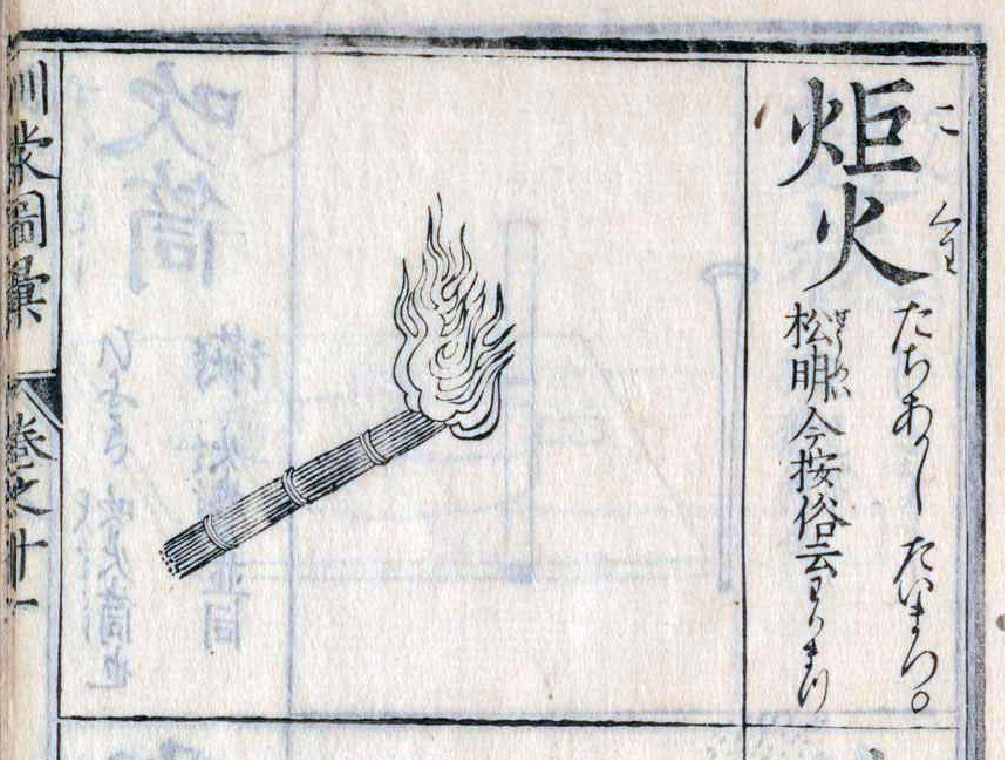 炬火
こ くは
たちあかし たいまつ。
松明 今按俗云わりまつ
せうめい
訓蒙圖彙 巻之十一